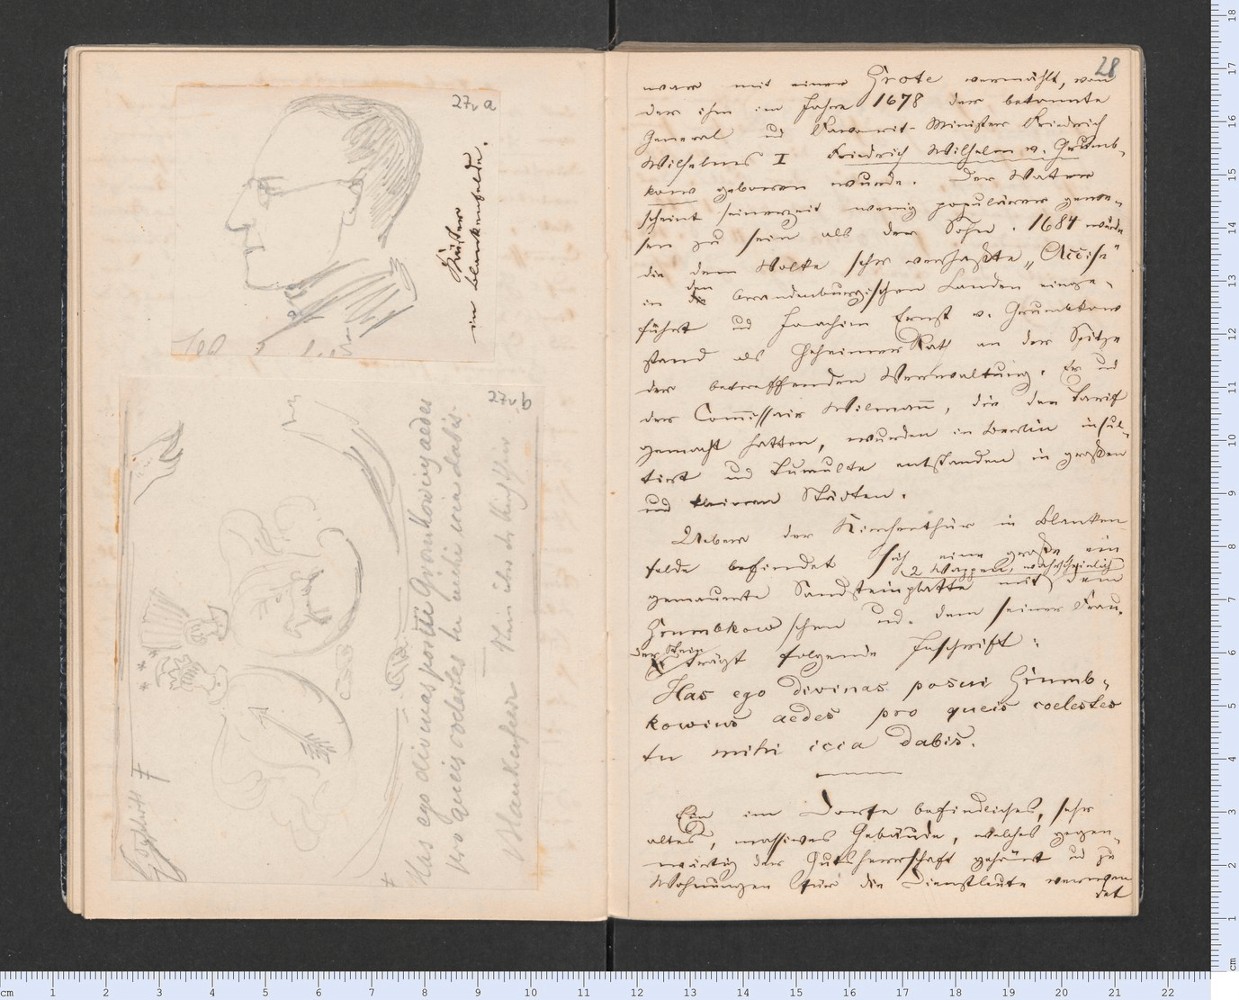 27v a
Küster
in Blankenfelde.
27v.b
Has ego divinas posui Grumkowius aedes
pro queis coelestes tu mihi icia dabis.
Blankenfelde
28
war mit einer Grote vermählt, von
der ihm im Jahre 1678 der bekannte
General ud Favorit-Minister Friedrich
Wilhelms I Friedrich Wilhelm v. Grumb-
kow geboren wurde. Der Vater
scheint seinerzeit wenig populärer gewe-
sen zu sein als der Sohn. 1684 wurde
die dem Volke sehr verhaßte „Accise"
in den brandenburgischen Landen einge-
führt ud Joachim Ernst v. Grumbkow
stand als Geheimer Rath an der Spitze
der betreffenden Verwaltung. Er ud
der Commissair Wilmann, die den Tarif
gemacht hatten, wurden in Berlin insul-
tirt ud Tumulte entstanden in großen
und kleinen Städten.
Ueber der Kirchenthür in Blanken
felde befindet sich eine große ein
gemauerte Sandsteinplatte mit (2 Wappen, wahrscheinlich) dem
Grumbkowschen ud. dem seiner Frau.
Der Stein trägt folgende Inschrift:
Has ego divinas posui Grumb-
kowius aedes pro queis coelestes
tu mihi icia dabis.
Ein im Dorfe befindliches, sehr
altes, massives Gebäude, welches gegen-
wärtig der Gutsherrschaft gehört ud zu
Wohnungen für die Dienstleute verwen
det